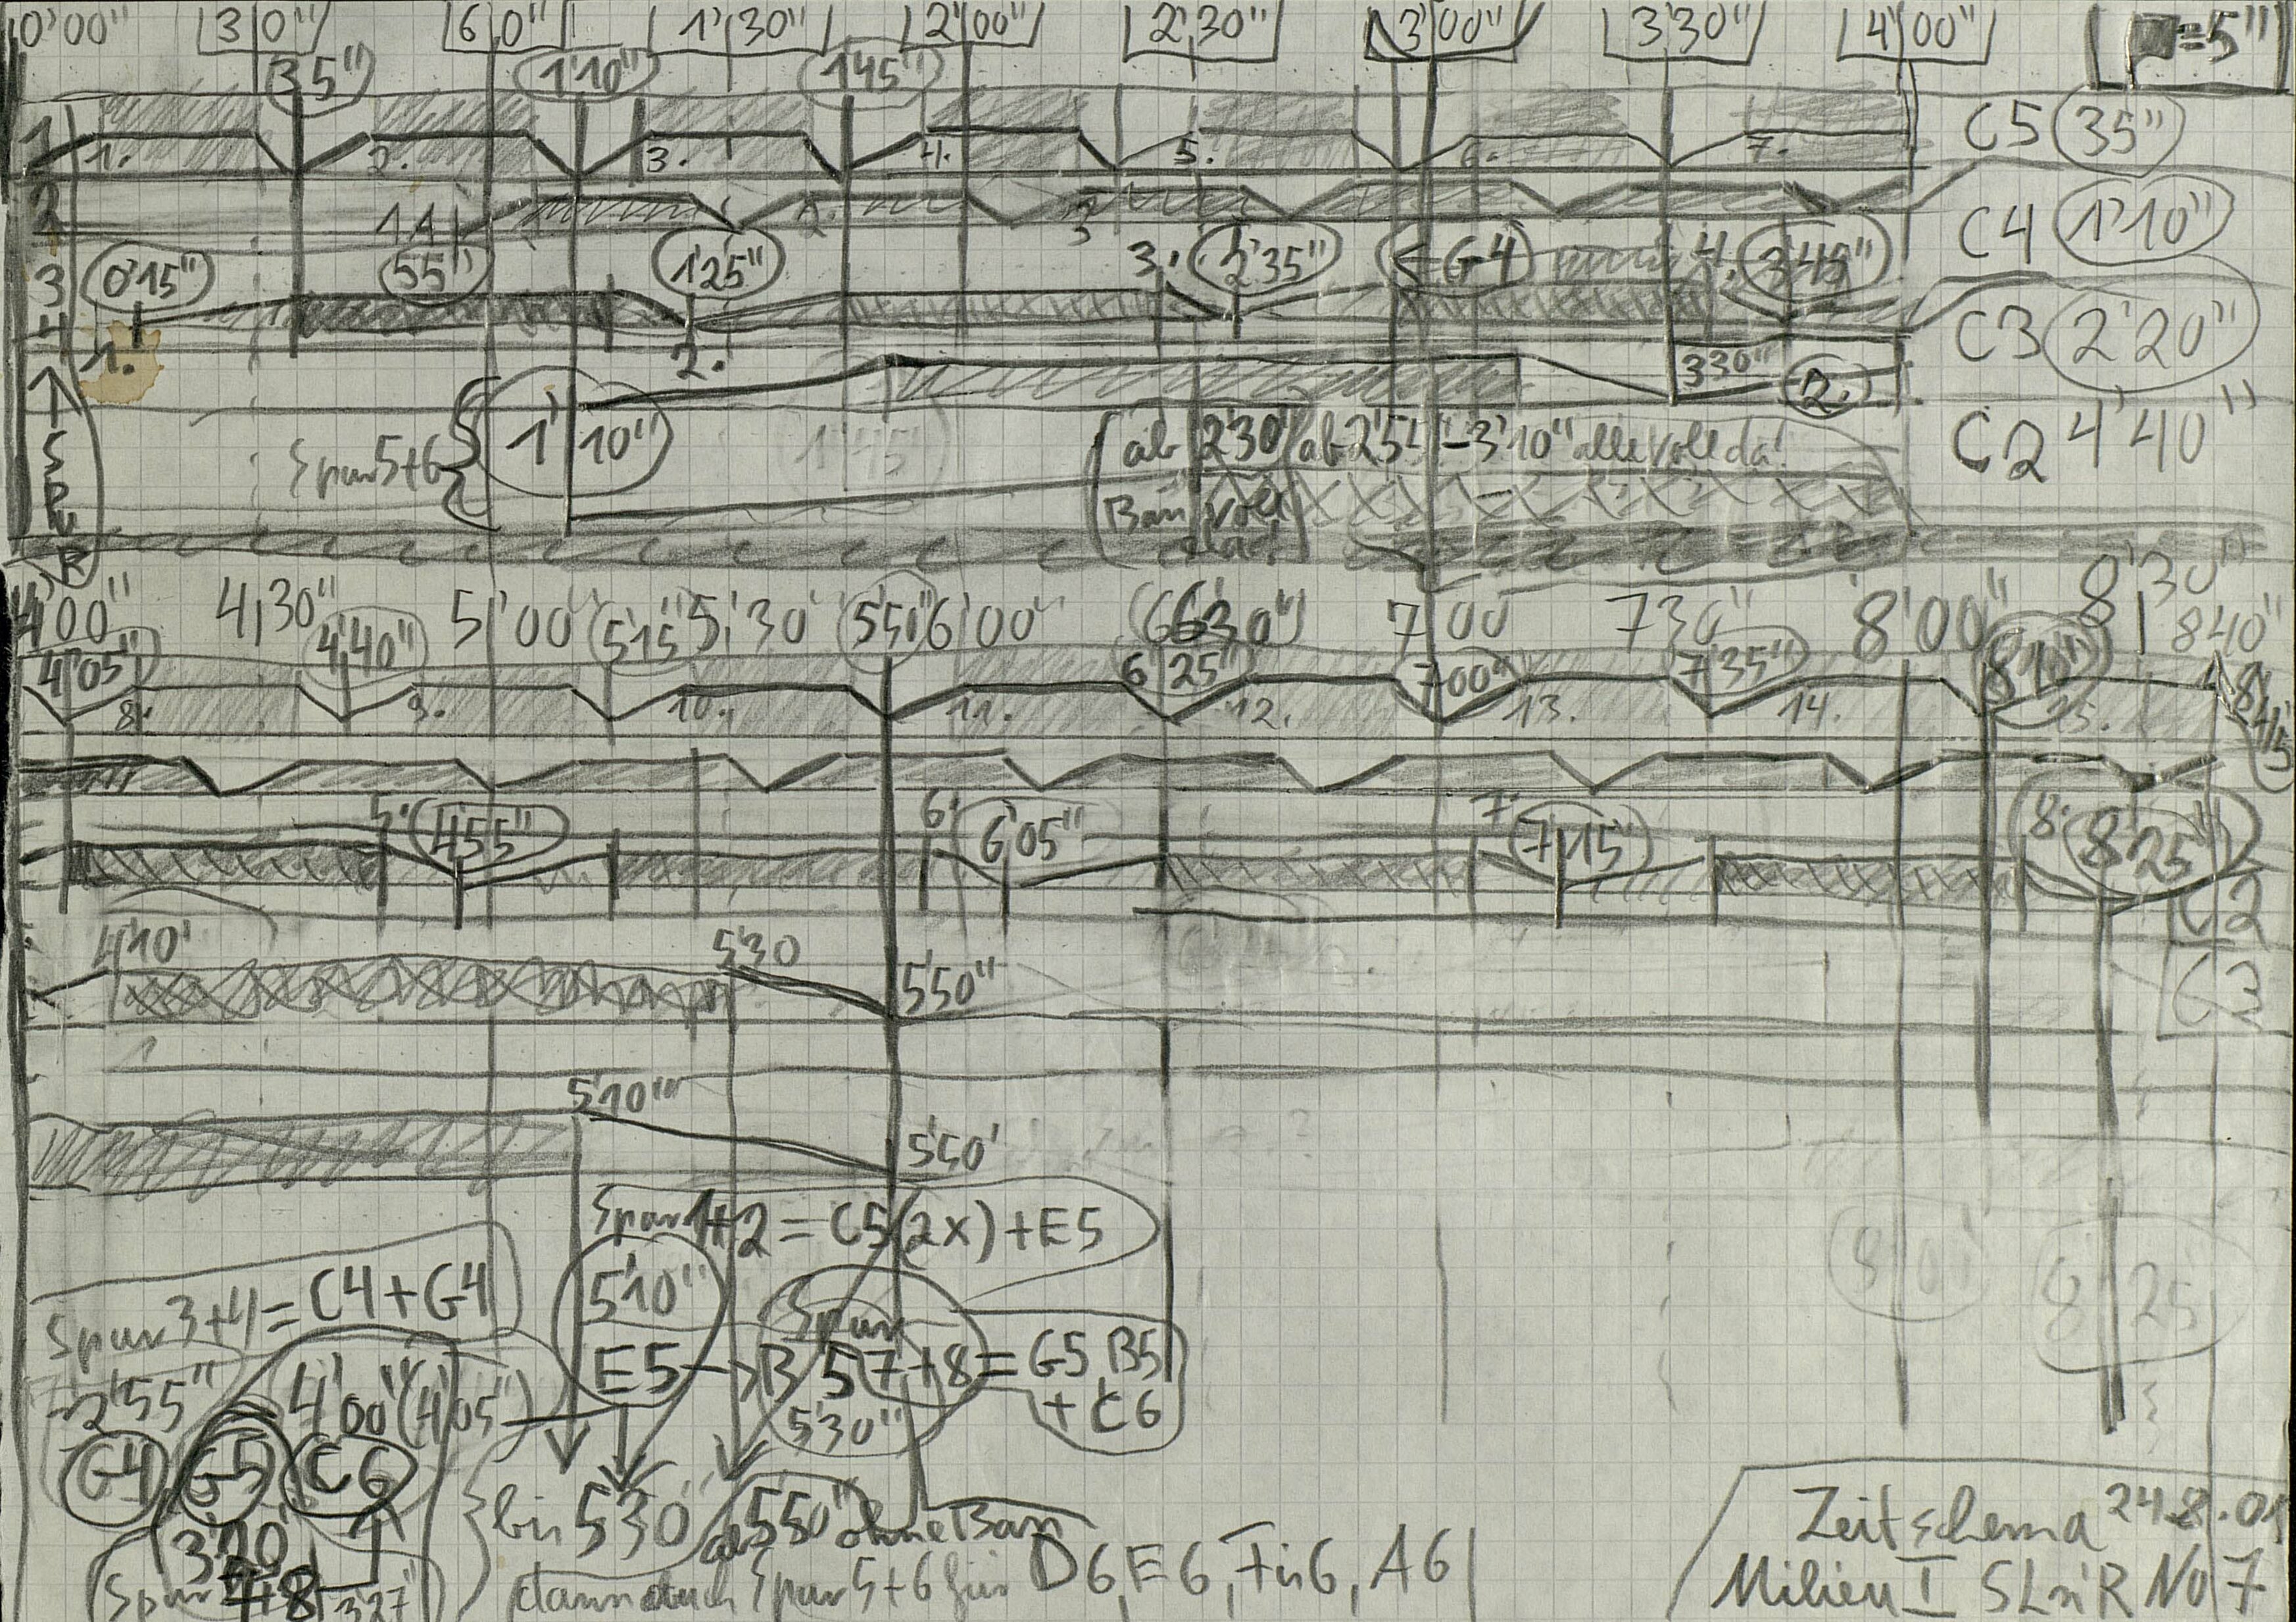 0'00" 30" 60" 1'30" 2'00" 2'30" 3'00" 3'30" 4'00" =5"
35" 1'10" 145"
1 1. 2. 3. 4. 5. 6. 7. C5 35"
2 1A 2. 3 C4 1'10"
3 0'15" 55" 1'25" 3. 2'35" ← G4 4. 3'45"
4 1. 2. C3 2'20"
330" 2.
SPUR Spur 5+6 { 1'10" 1'45" ab 2'30" ab 2'5 -3'10" alle voll da! C2 4'40"
Baß voll da!
4'00" 4,30" 5'00" 5'15" 5'30 550" 6'00" 6 630" 7 00 7 30" 8'00" 8'30"
4'05" 4'40" 6 25" 700" 7'35" 810" 840"
8. 9. 10. 11. 12. 13. 14. 15. 8'45
5. 455" 6. 6'05" 7. 7'15" 8. 8'25"
C2
4'10' 5'30 550" C3
5'10" 5'50'
Spur 1+2 = C5 (2x) + E5
Spur 3+4 = C4 + G4 5'10" Spur 8'00" 8'25
-2'55" 4'00" (4'05") E5 → B 5 7+8 = G5, B5
5'30" + C6
G4 G5 C6
bis 530' ab 550" ohne Bass
3'20'
Spur 4+8 327" dann auch Spur 5+6 für D6, E6, Fis6, A6
Zeitschema 24.8.01
Milieu I SLniR No 7